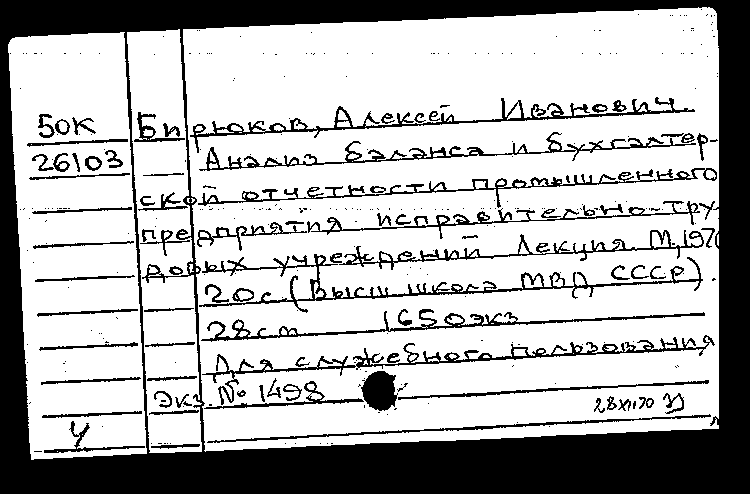 50К Бирюков, Алексей Иванович.
26103 Анализ баланса и бухгалтер-
ской отчетности промышленного
предприятия исправительно-тру-
довых учреждений. Лекция. М, 1970
20с (Высш школа МВД СССР).
28см 1650экз
Для служебного пользования
Экз. № 1498
28 XI 70
Ч